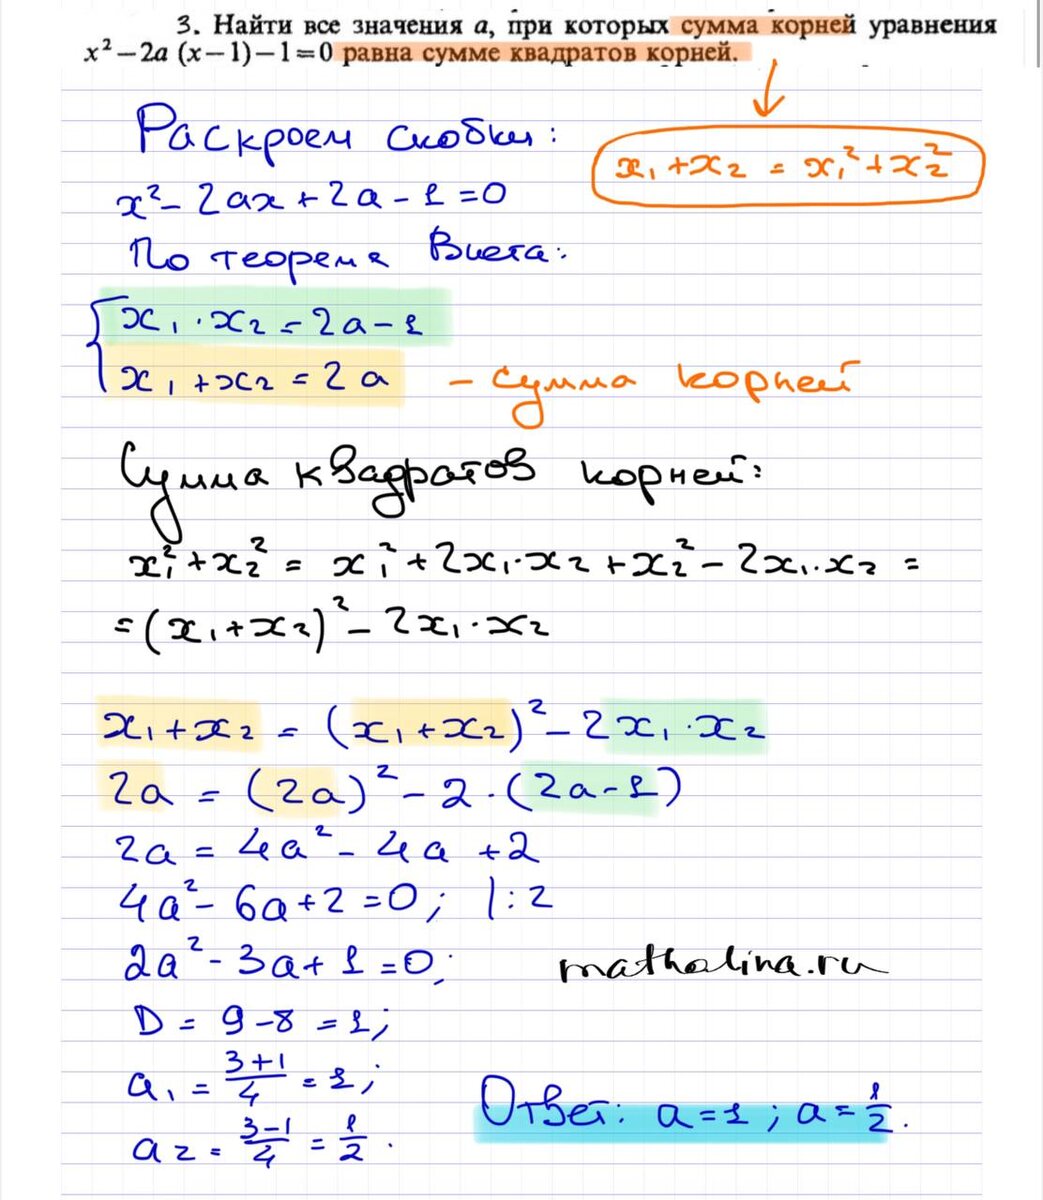 3. Найти все значения a, при которых сумма корней уравнения
x² – 2a (x – 1) – 1 = 0 равна сумме квадратов корней.
Раскроем скобки:
x₁ + x₂ = x₁² + x₂²
x² - 2ax + 2a - 1 = 0
По теореме Виета:
x₁ · x₂ = 2a - 1
x₁ + x₂ = 2a – сумма корней
Сумма квадратов корней:
x₁² + x₂² = x₁² + 2x₁·x₂ + x₂² - 2x₁·x₂ =
= (x₁ + x₂)² - 2x₁·x₂
x₁ + x₂ = (x₁ + x₂)² - 2x₁·x₂
2a = (2a)² - 2·(2a - 1)
2a = 4a² - 4a + 2
4a² - 6a + 2 = 0; |:2
2a² - 3a + 1 = 0;
matholina.ru
D = 9 - 8 = 1;
a₁ = (3+1)/4 = 1;
Ответ: a = 1; a = 1/2.
a₂ = (3-1)/4 = 1/2.